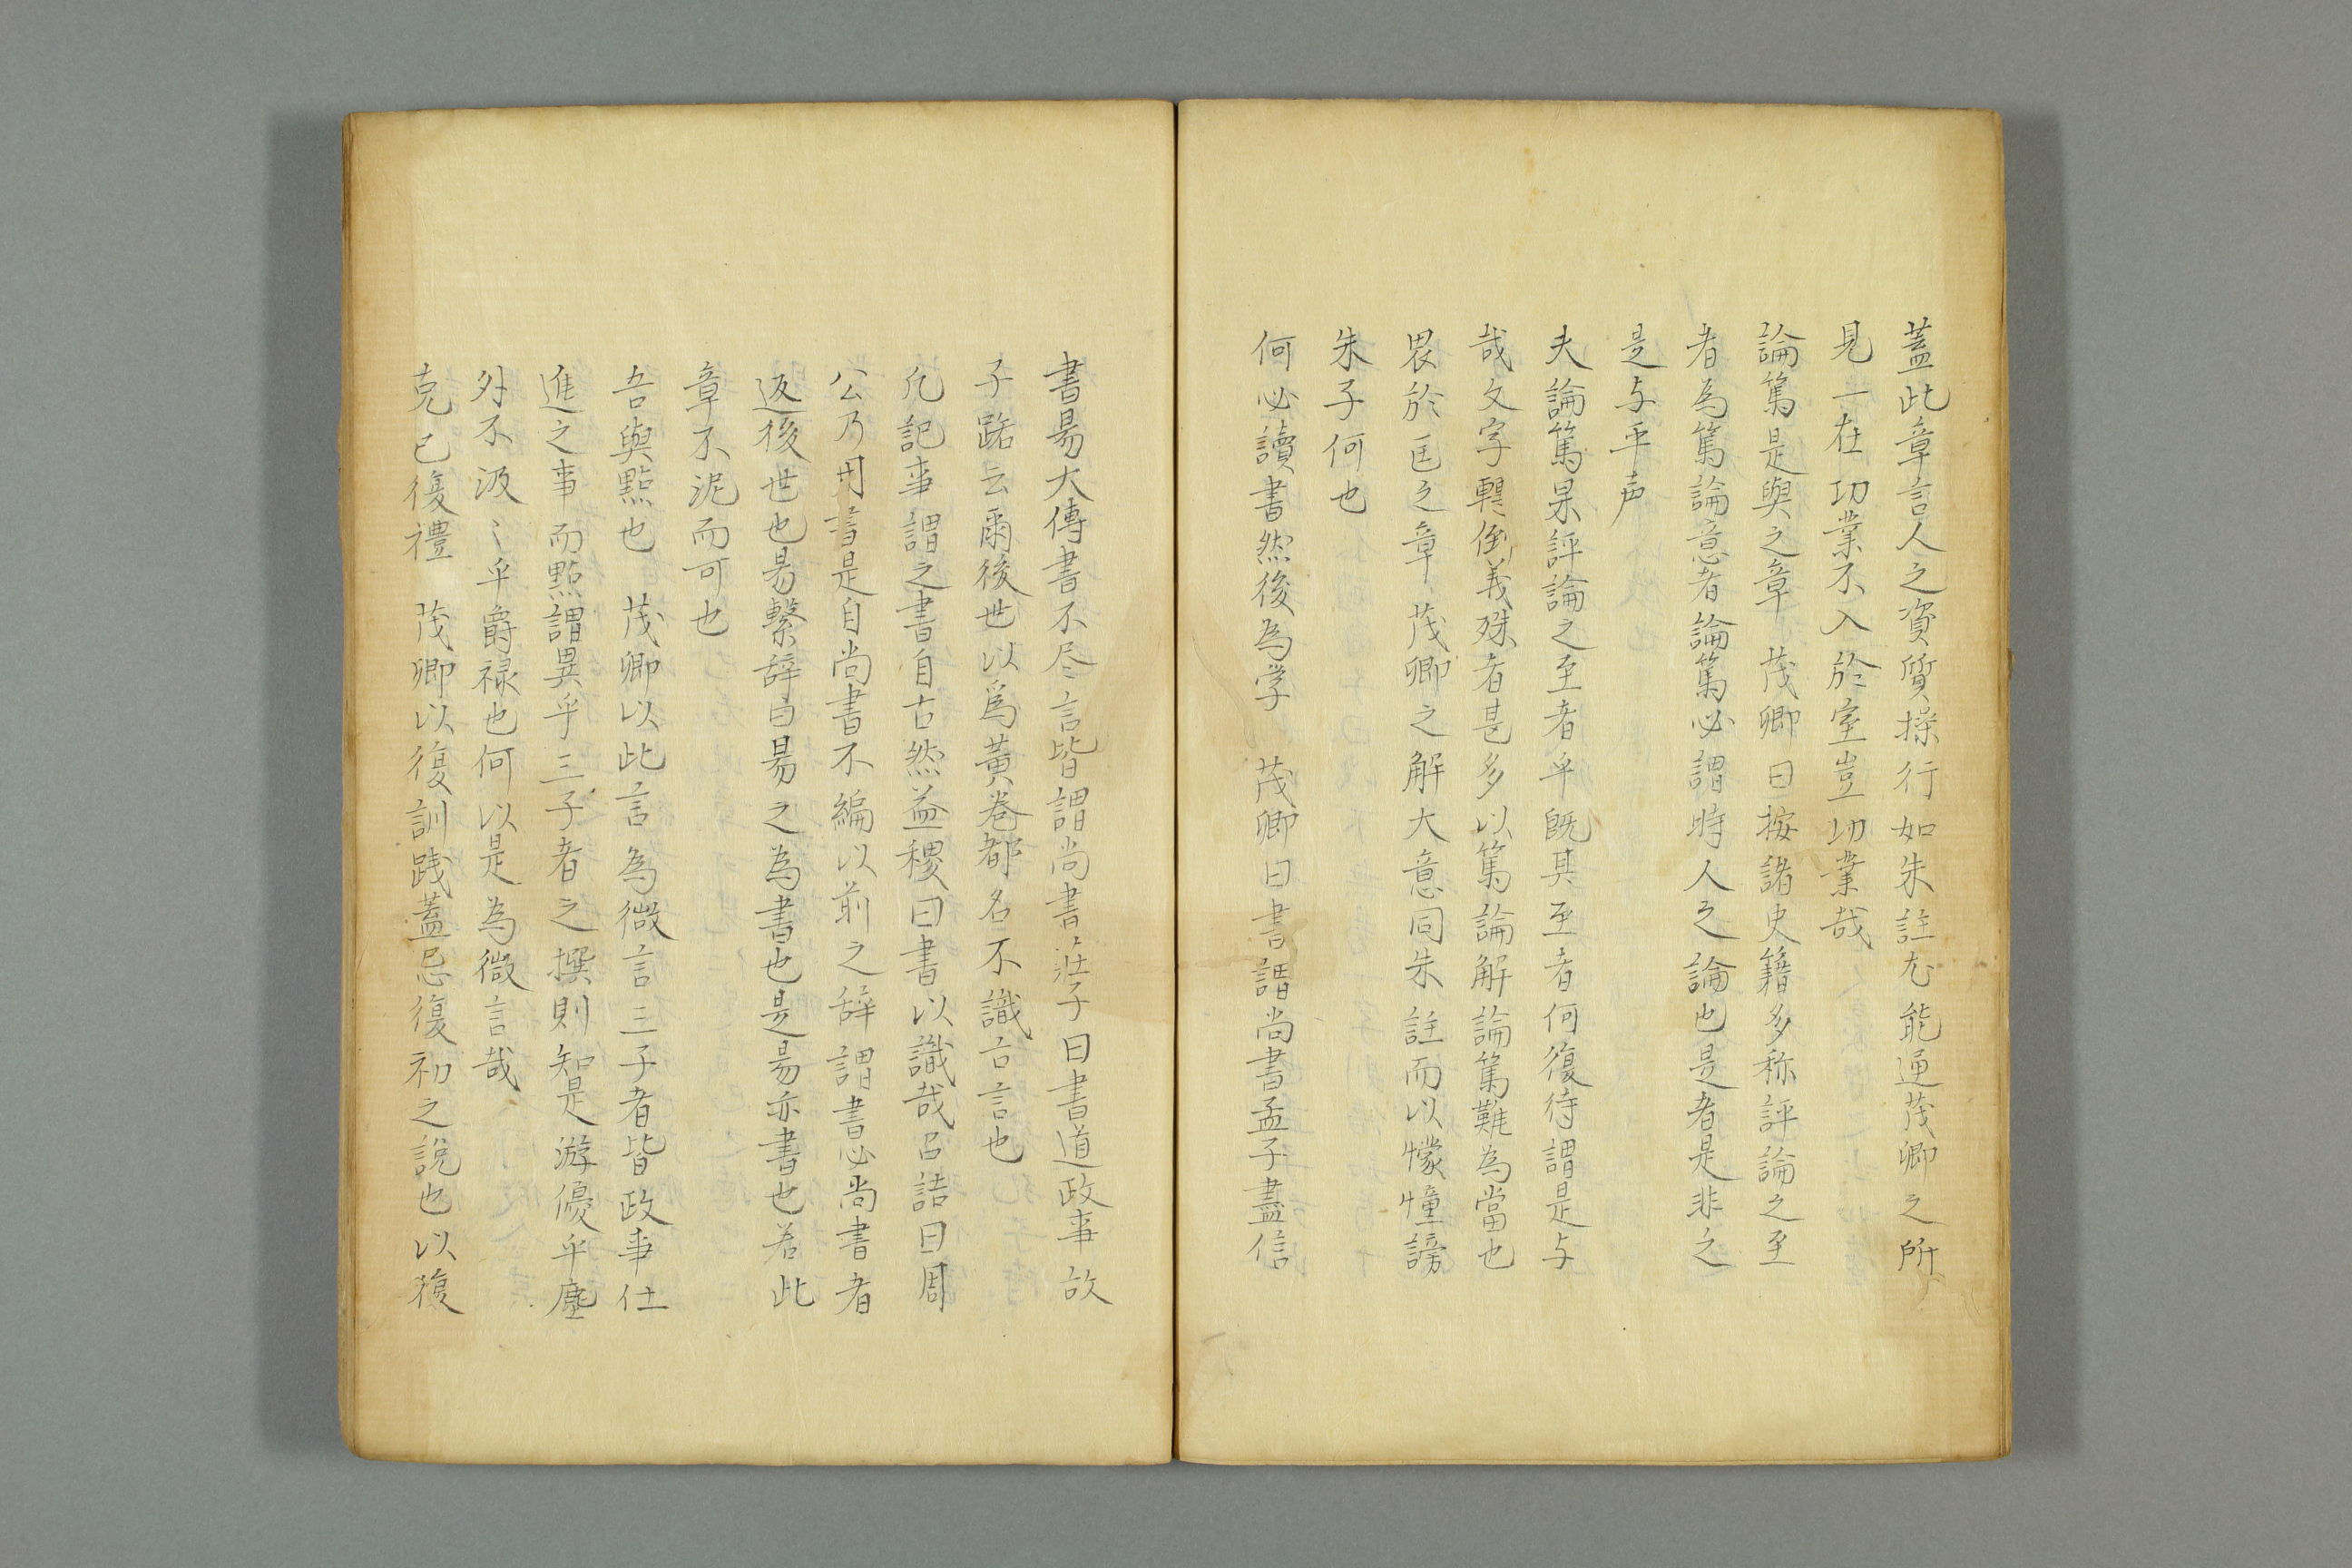 蓋此章言人之資質操行如朱註尤能通茂卿之所
見一在功業不入於室豈功業哉
論篤是與之章　茂卿曰按諸史籍多称評論之至
者為篤論意者論篤必謂時人之論也是者是非之
是与平声
夫論篤果評論之至者乎既其至者何復待謂是与
哉文字顛倒義殊者甚多以篤論解論篤難為當也
畏於匡之章　茂卿之解大意同朱註而以懞憧謗
朱子何也
何必讀書然後為学　茂卿曰書謂尚書孟子盡信
書易大傳書不尽言皆謂尚書荘子曰書道政事故
子路云爾後世以爲黄巻都名不識古言也
凡記事謂之書自古然益稷曰書以識哉召誥曰周
公乃用書是自尚書不編以前之辞謂書必尚書者
返後世也易繋辞曰易之為書也是易亦書也若此
章不泥而可也
吾與點也　茂卿以此言為微言三子者皆政事仕
進之事而點謂異乎三子者之撰則知是游優乎塵
外不汲〻乎爵禄也何以是為微言哉
克己復禮　茂卿以復訓践蓋忌復初之説也以復